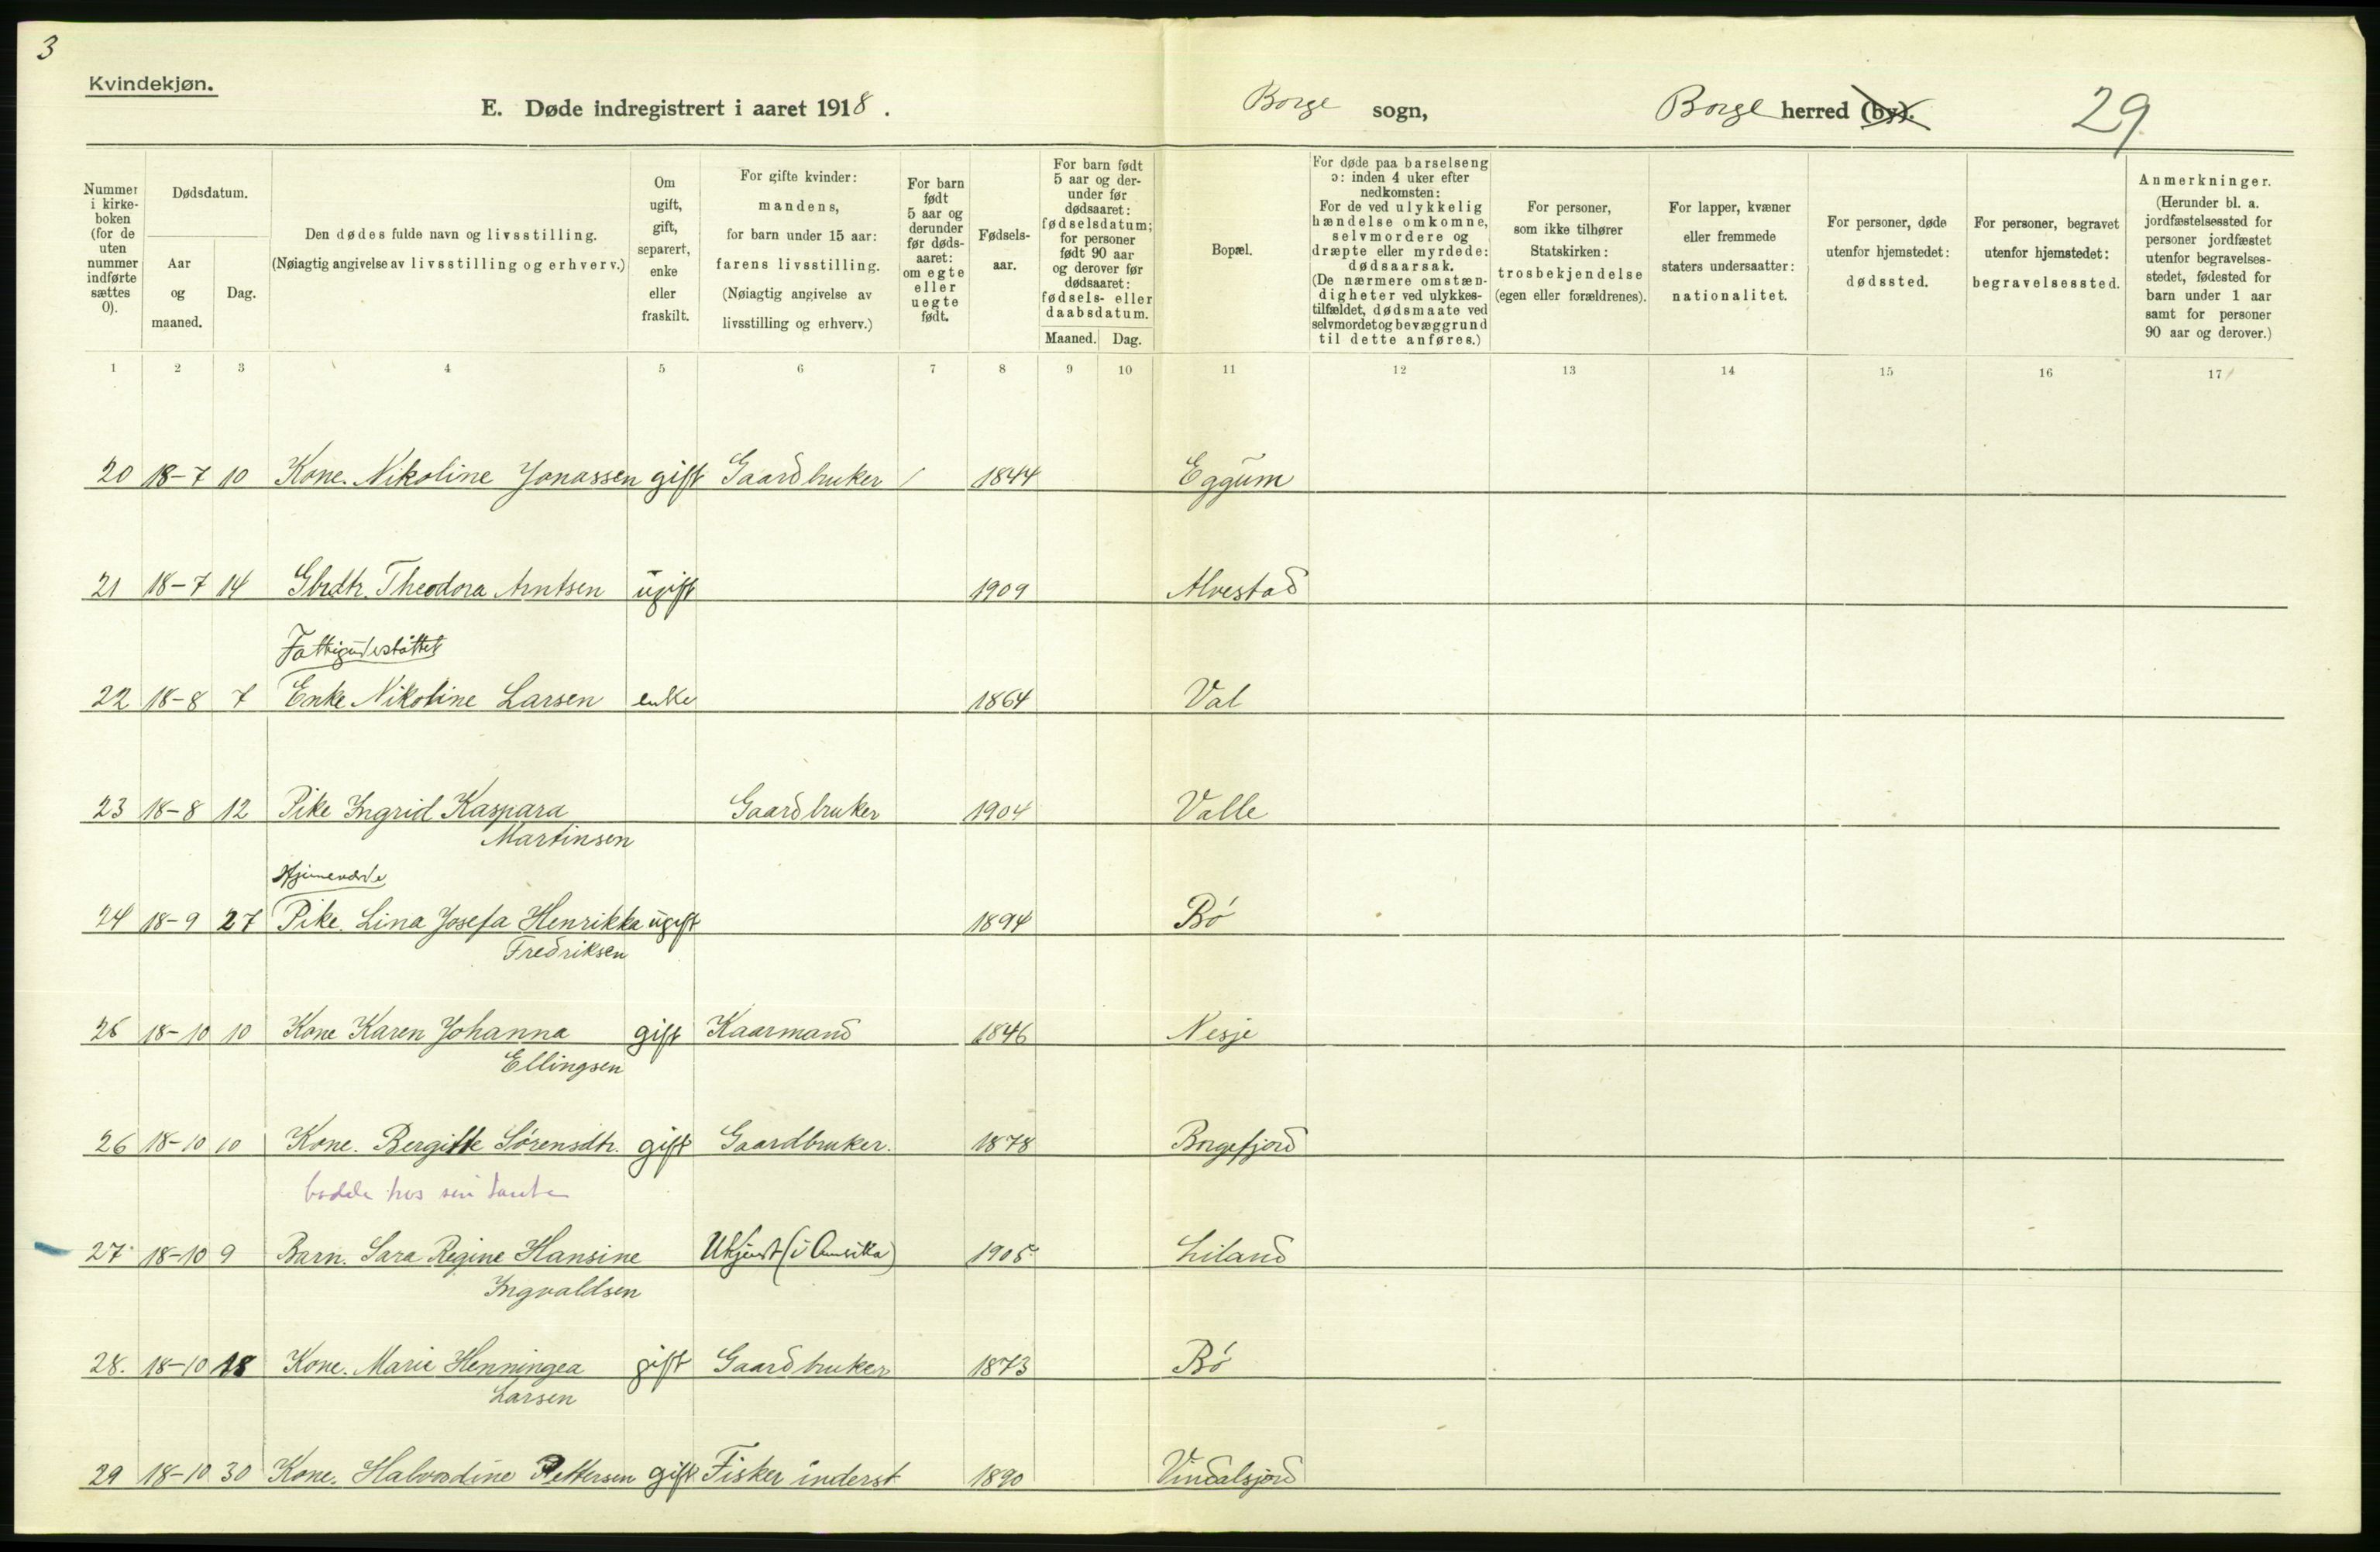 3
Kvindekjøn.
E. Døde indregistrert i aaret 1918.
Borge sogn,
Borge herred (by).
29
Nummer i kirkeboken (for de uten nummer indførte sættes 0).
Dødsdatum.
Aar og maaned.
Dag.
Den dødes fulde navn og livsstilling.
(Nøiagtig angivelse av livsstilling og erhverv.)
Om ugift, gift, separert, enke eller fraskilt.
For gifte kvinder: mandens, for barn under 15 aar: farens livsstilling. (Nøiagtig angivelse av livsstilling og erhverv.)
For barn født 5 aar og derunder før dødsaaret: om egte eller uegte født.
Fødselsaar.
For barn født 5 aar og derunder før dødsaaret: fødselsdatum; for personer født 90 aar og derover før dødsaaret: fødsels- eller daabsdatum.
Maaned. Dag.
Bopæl.
For døde paa barselseng ɔ: inden 4 uker efter nedkomsten: For de ved ulykkelig hændelse omkomne, selvmordere og dræpte eller myrdede: dødsaarsak. (De nærmere omstændigheter ved ulykkestilfældet, dødsmaate ved selvmordet og bevæggrund til dette anføres.)
For personer, som ikke tilhører Statskirken: trosbekjendelse (egen eller forældrenes).
For lapper, kvæner eller fremmede staters undersaatter: nationalitet.
For personer, døde utenfor hjemstedet: dødssted.
For personer, begravet utenfor hjemstedet: begravelsessted.
Anmerkninger. (Herunder bl. a. jordfæstelsessted for personer jordfæstet utenfor begravelsesstedet, fødested for barn under 1 aar samt for personer 90 aar og derover.)
1 2 3 4 5 6 7 8 9 10 11 12 13 14 15 16 17
20 18-7 10 Kone. Nikoline Jonassen gift Gaardbruker / 1844 Eggum
21 18-7 14 Gbrdtr. Theodora Arntsen ugift 1909 Alvestad
Fattigunderstöttet
22 18-8 7 Enke Nikoline Larsen enke 1864 Val
23 18-8 12 Pike Ingrid Kaspara Gaardbruker 1904 Valle
Martinsen
Hjemeværende
24 18-9 27 Pike. Lina Josefa Henrikka ugift 1894 Bö
Fredriksen
25 18-10 10 Kone Karen Johanna gift Kaarmand 1846 Nesje
Ellingsen
26 18-10 10 Kone. Bergitte Sörensdtr. gift Gaardbruker. 1878 Borgefjord
bodde hos sin tante
27 18-10 9 Barn. Sara Regine Hansine Ukjent (i Amerika) 1905 Liland
Ingvaldsen
28. 18-10 18 Kone. Marie Henningea gift Gaardbruker 1873 Bö
Larsen
29 18-10 30 Kone. Halvordine Pettersen gift Fisker inderst 1890 Vindalsjord